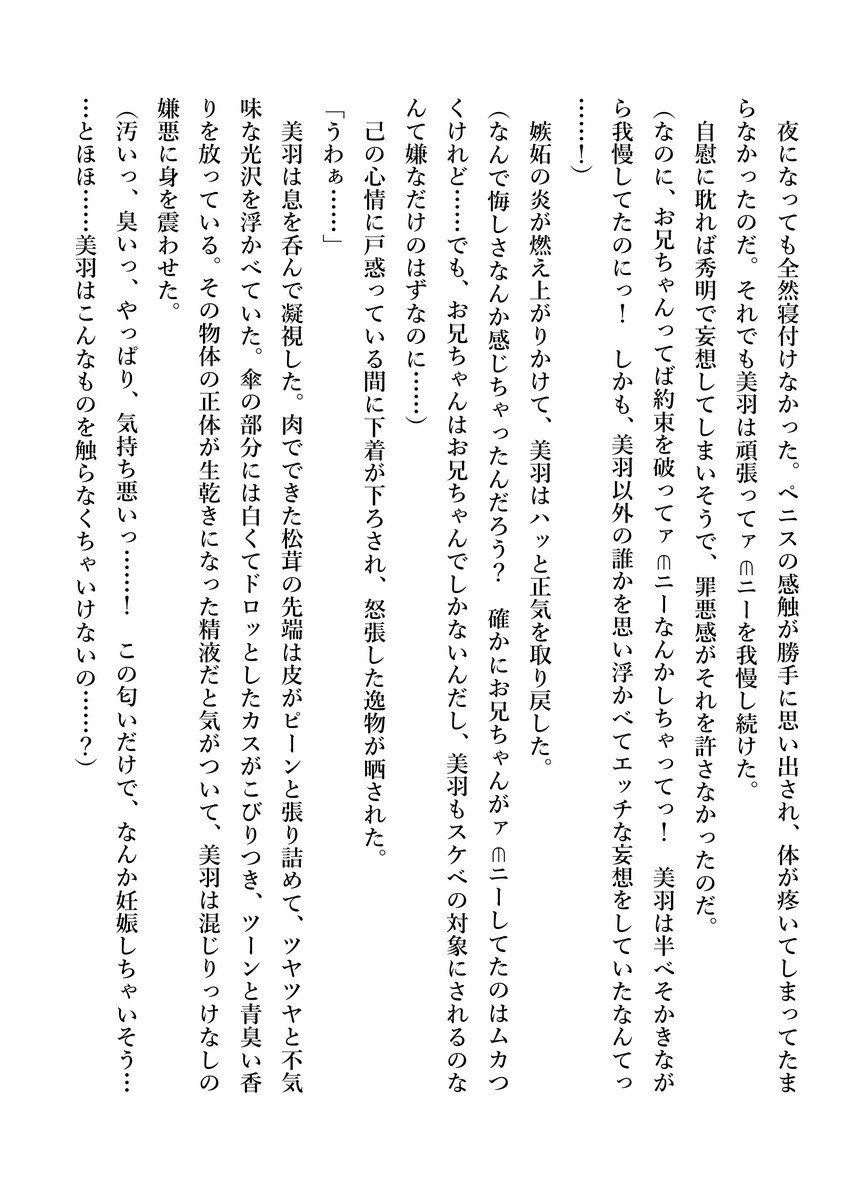 夜になっても全然寝付けなかった。ペニスの感触が勝手に思い出され、体が疼いてしまってたま
らなかったのだ。それでも美羽は頑張ってァ⋒ニーを我慢し続けた。
自慰に耽れば秀明で妄想してしまいそうで、罪悪感がそれを許さなかったのだ。
(なのに、お兄ちゃんってば約束を破ってァ⋒ニーなんかしちゃってっ!　美羽は半べそかきなが
ら我慢してたのにっ!　しかも、美羽以外の誰かを思い浮かべてエッチな妄想をしていたなんてっ
……!)
嫉妬の炎が燃え上がりかけて、美羽はハッと正気を取り戻した。
(なんで悔しさなんか感じちゃったんだろう?　確かにお兄ちゃんがァ⋒ニーしてたのはムカつ
くけれど……でも、お兄ちゃんはお兄ちゃんでしかないんだし、美羽もスケベの対象にされるのな
んて嫌なだけのはずなのに……)
己の心情に戸惑っている間に下着が下ろされ、怒張した逸物が晒された。
「うわぁ……」
美羽は息を呑んで凝視した。肉でできた松茸の先端は皮がピーンと張り詰めて、ツヤツヤと不気
味な光沢を浮かべていた。傘の部分には白くてドロッとしたカスがこびりつき、ツーンと青臭い香
りを放っている。その物体の正体が生乾きになった精液だと気がついて、美羽は混じりっけなしの
嫌悪に身を震わせた。
(汚いっ、臭いっ、やっぱり、気持ち悪いっ……!　この匂いだけで、なんか妊娠しちゃいそう…
…とほほ……美羽はこんなものを触らなくちゃいけないの……?)